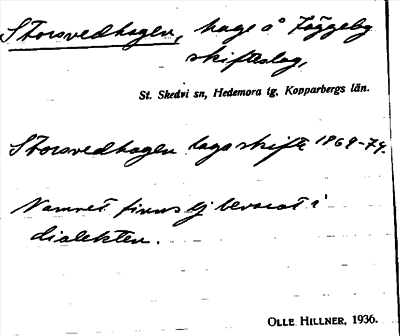 Storsvedhagen, hage å Jöggeby
skifteslag,
St. Skedvi sn, Hedemora tg, Kopparbergs län.
Storsvedhagen laga skifte 1869-74.
Namnet finns ej bevarat i
dialekten.
OLLE HILLNER, 1936.